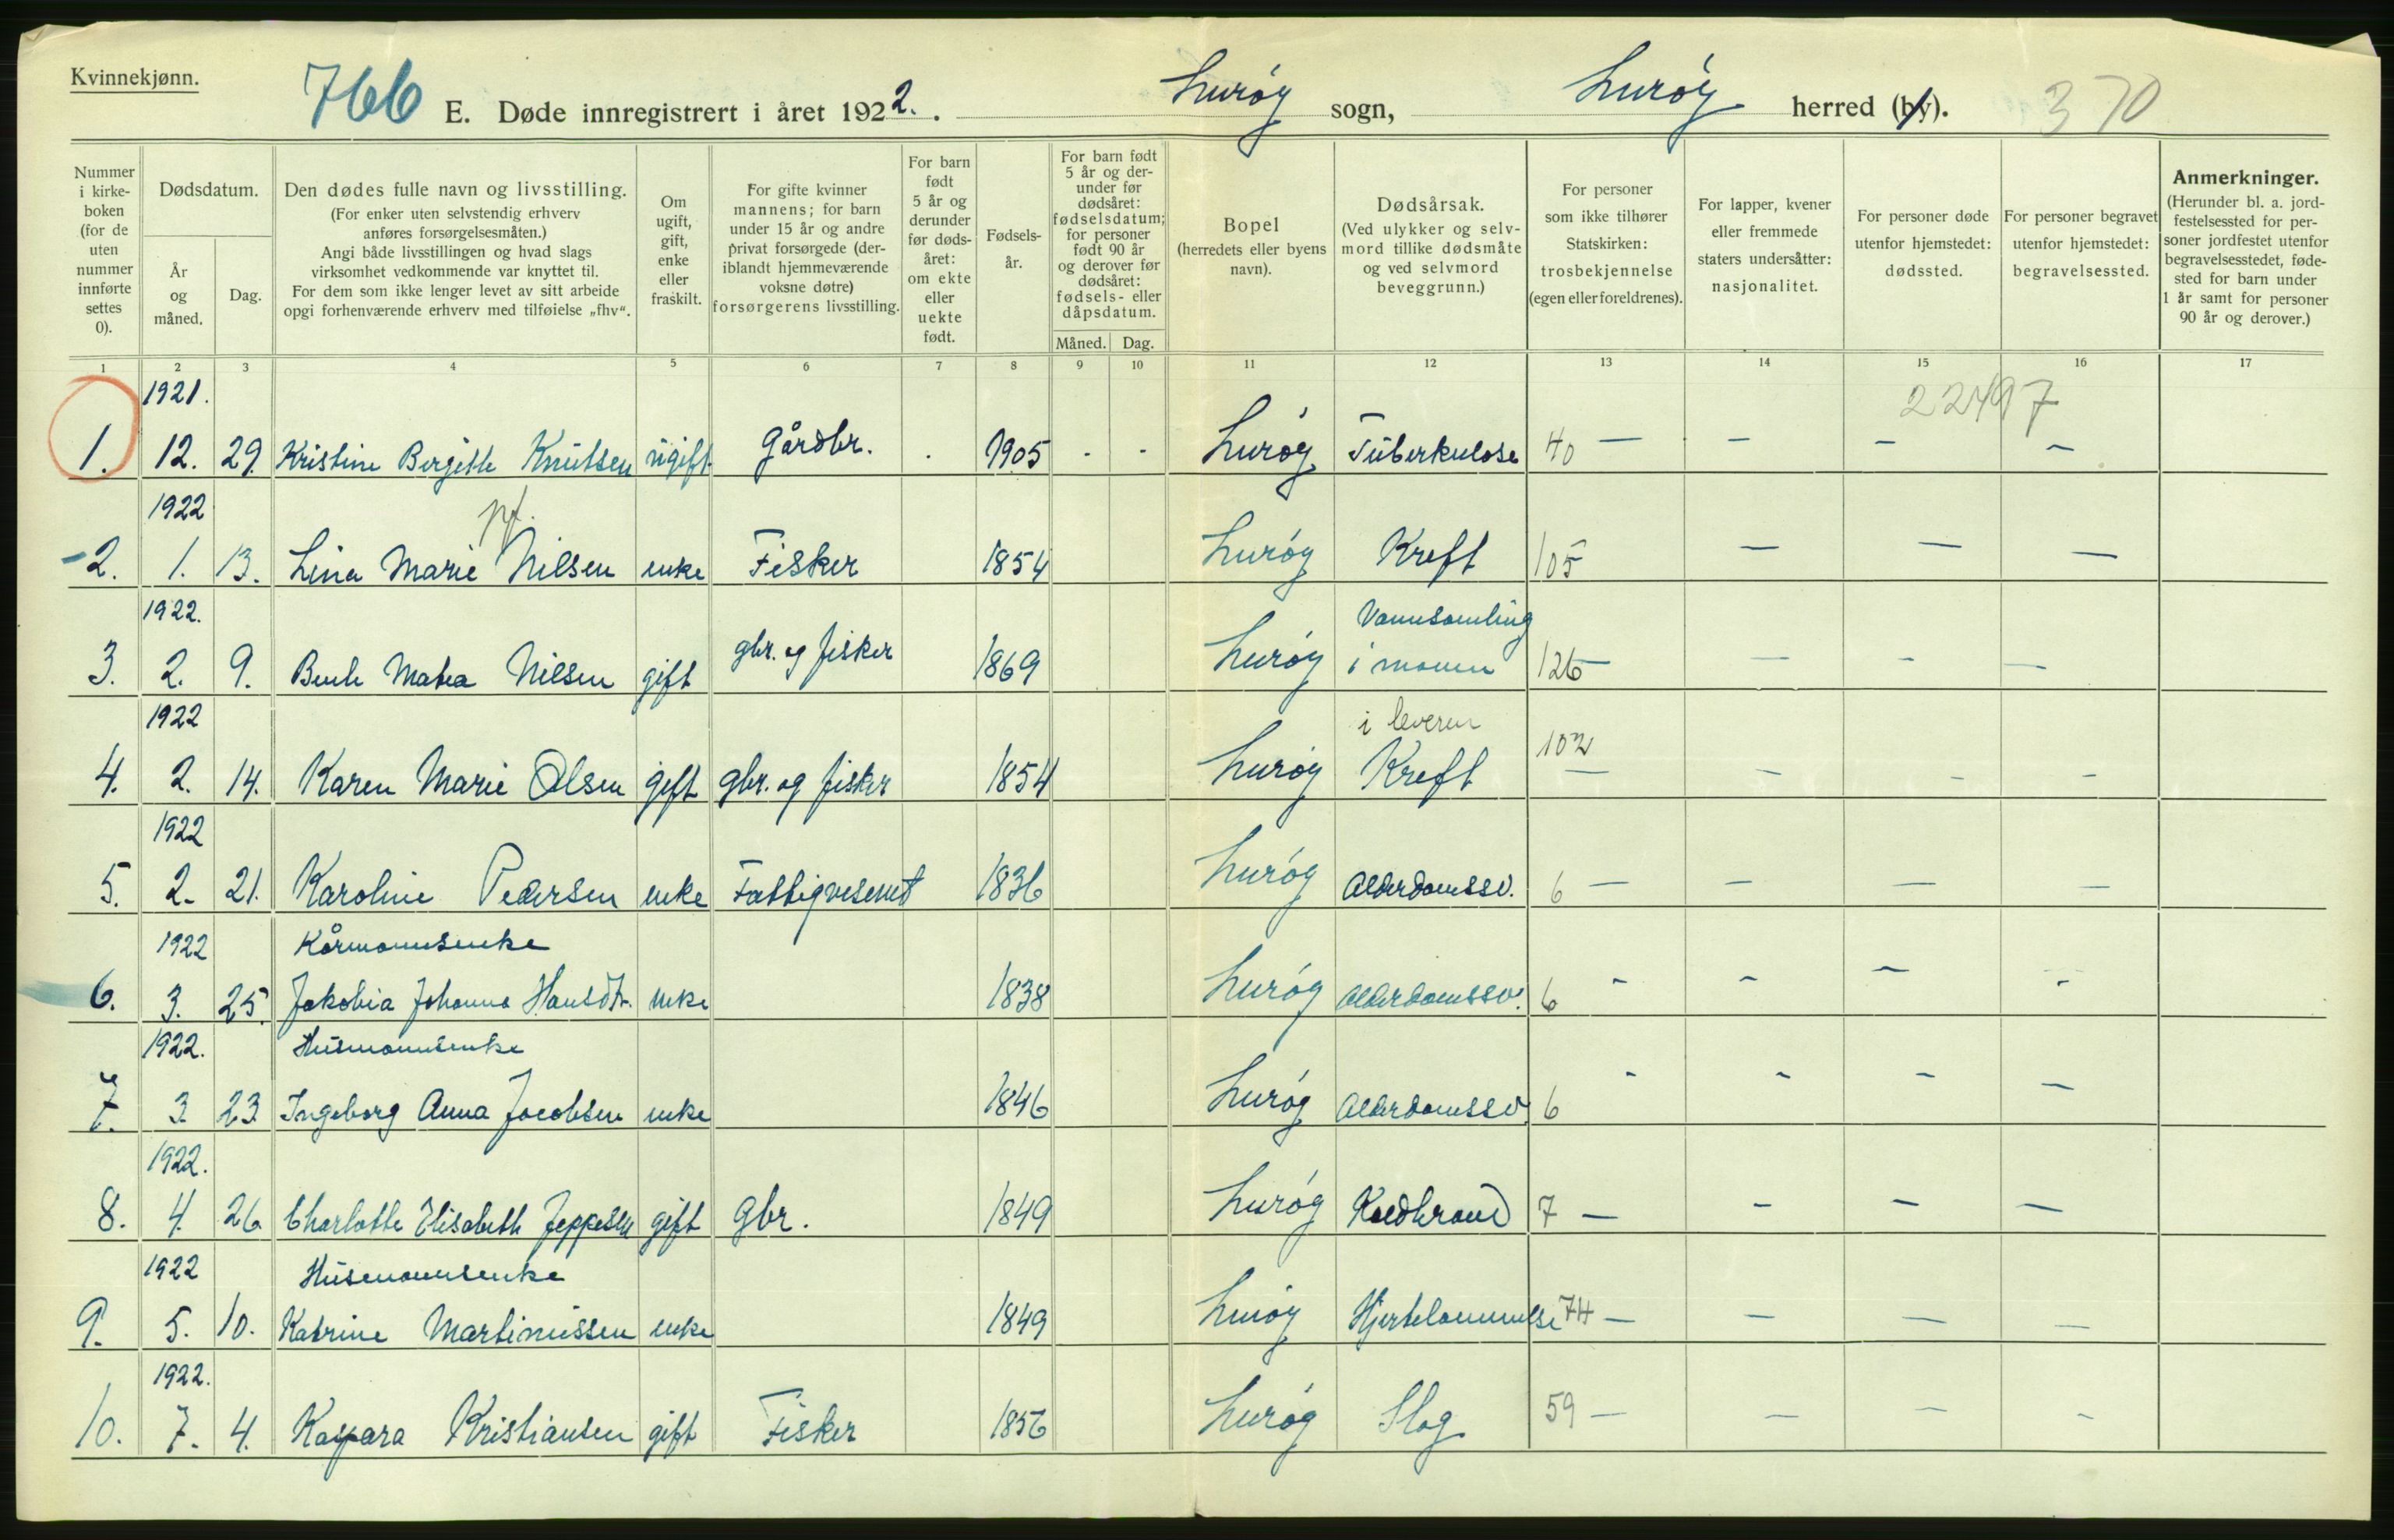 Kvinnekjønn.
766 E. Døde innregistrert i året 1922. Lurøy sogn, Lurøy herred (by). 370
Nummer i kirke-boken (for de uten nummer innførte settes 0).
Dødsdatum.
År og måned.
Dag.
Den dødes fulle navn og livsstilling.
(For enker uten selvstendig erhverv anføres forsørgelsesmåten.)
Angi både livsstillingen og hvad slags virksomhet vedkommende var knyttet til.
For dem som ikke lenger levet av sitt arbeide opgi forhenværende erhverv med tilføielse „fhv“.
Om ugift, gift, enke eller fraskilt.
For gifte kvinner mannens; for barn under 15 år og andre privat forsørgede (deriblandt hjemmeværende voksne døtre) forsørgerens livsstilling.
For barn født 5 år og derunder før dødsåret: om ekte eller uekte født.
Fødselsår.
For barn født 5 år og derunder før dødsåret: fødselsdatum; for personer født 90 år og derover før dødsåret: fødsels- eller dåpsdatum.
Måned. Dag.
Bopel (herredets eller byens navn).
Dødsårsak.
(Ved ulykker og selvmord tillike dødsmåte og ved selvmord beveggrunn.)
For personer som ikke tilhører Statskirken: trosbekjennelse (egen eller foreldrenes).
For lapper, kvener eller fremmede staters undersåtter: nasjonalitet.
For personer døde utenfor hjemstedet: dødssted.
For personer begravet utenfor hjemstedet: begravelsessted.
Anmerkninger.
(Herunder bl. a. jordfestelsessted for personer jordfestet utenfor begravelsesstedet, fødested for barn under 1 år samt for personer 90 år og derover.)
1 2 3 4 5 6 7 8 9 10 11 12 13 14 15 16 17
1921. 22497
1. 12. 29. Kristine Bergitte Knutsen ugift Gårdbr. . 1905 - - Lurøy Tuberkulose 40 — — — —
1922 pf.
2. 1. 13. Lina Marie Nilsen enke Fisker 1854 Lurøy Kreft 105 — — —
1922. Vannsamling
3. 2. 9. Matea Nilsen gift gbr. og fisker 1869 Lurøy i maven 126 — — — —
1922 i leveren
4. 2. 14. Karen Marie Olsen gift gbr. og fisker 1854 Lurøy Kreft 102 — — — —
1922
5. 2. 21. Karoline Pedersen enke Fattigvesenet 1836 Lurøy Alderdomssv. 6 — — — —
1922 Kårmannsenke
6. 3. 25. Jakobia Johanna Hansdtr. enke 1838 Lurøy Alderdomssv. 6 - - — -
1922. Husmannsenke
7. 3 23 Ingeborg Anna Jacobsen enke 1846 Lurøy Alderdomssv. 6 - - - —
1922.
8. 4. 26. Charlotte Elisabeth Jeppesen gift gbr. 1849 Lurøy Koldbrand 7 — — — —
1922 Husmannsenke
9. 5. 10. Katrine Martinussen enke 1849 Lurøy Hjertelammelse 74 — — — —
1922.
10. 7. 4. Kaspara Kristiansen gift Fisker 1856 Lurøy Slag 59 — — — -